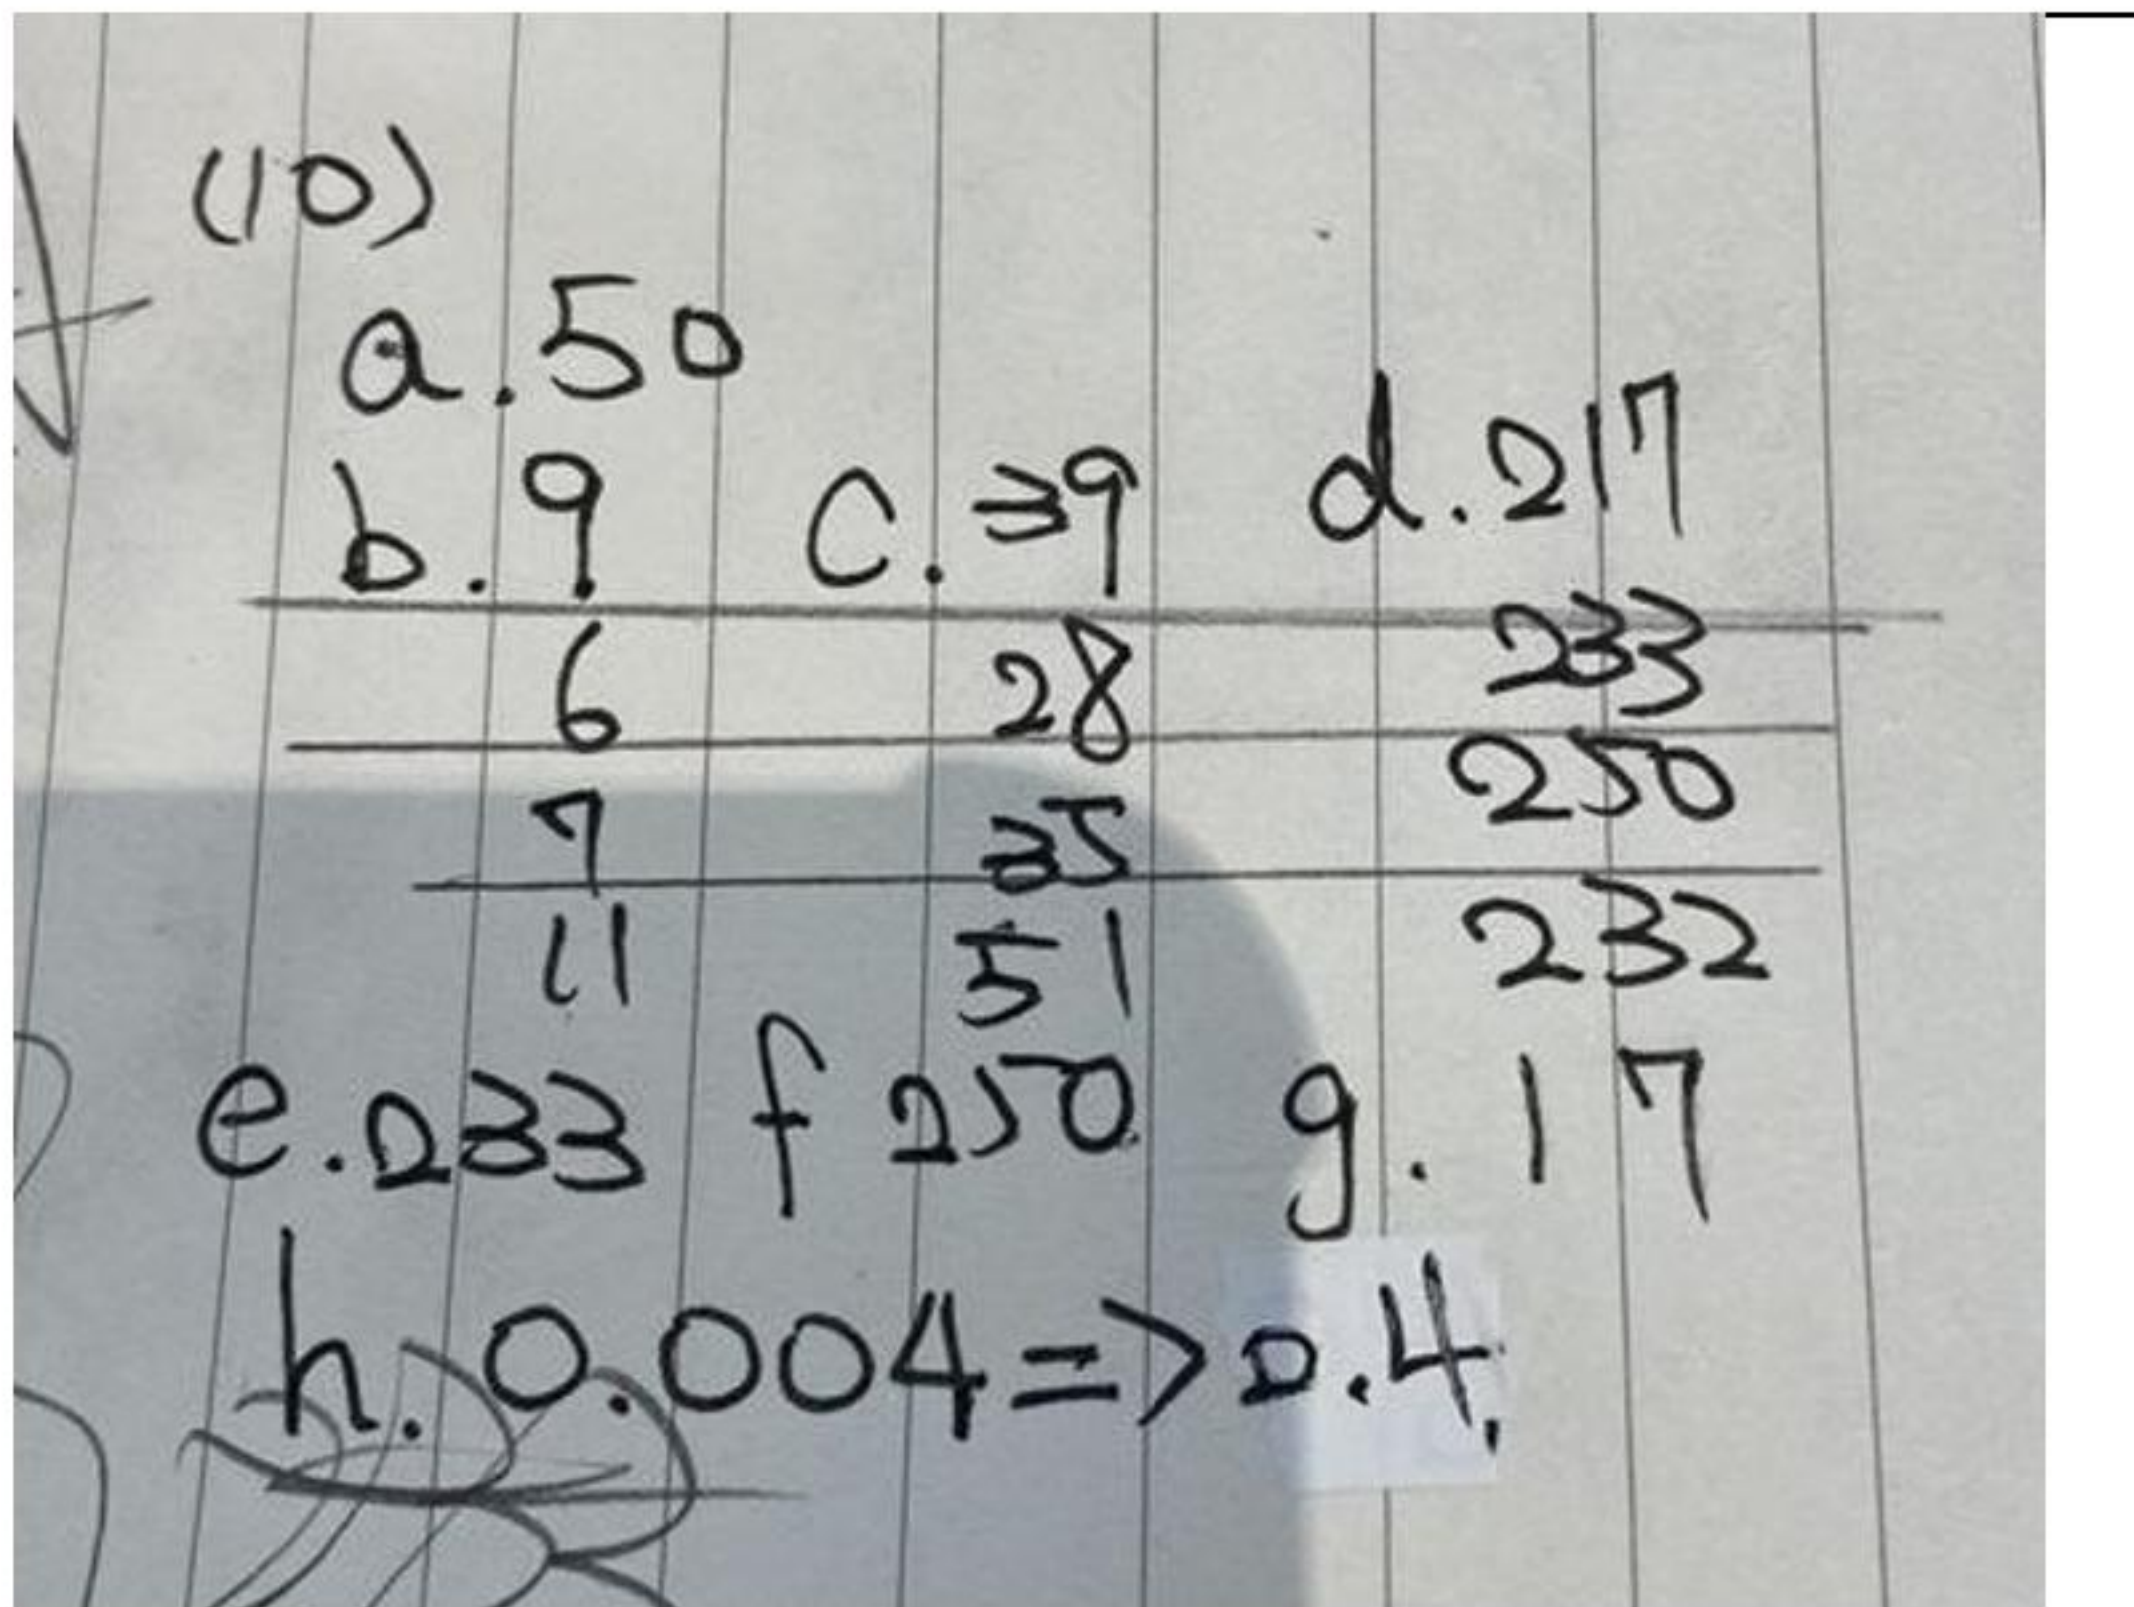 (10)
a. 50
b. 9 c. 39 d. 217
6 28 233
7 35 250
11 51 232
e. 233 f 250 g. 17
h. 0.004 => 0.4